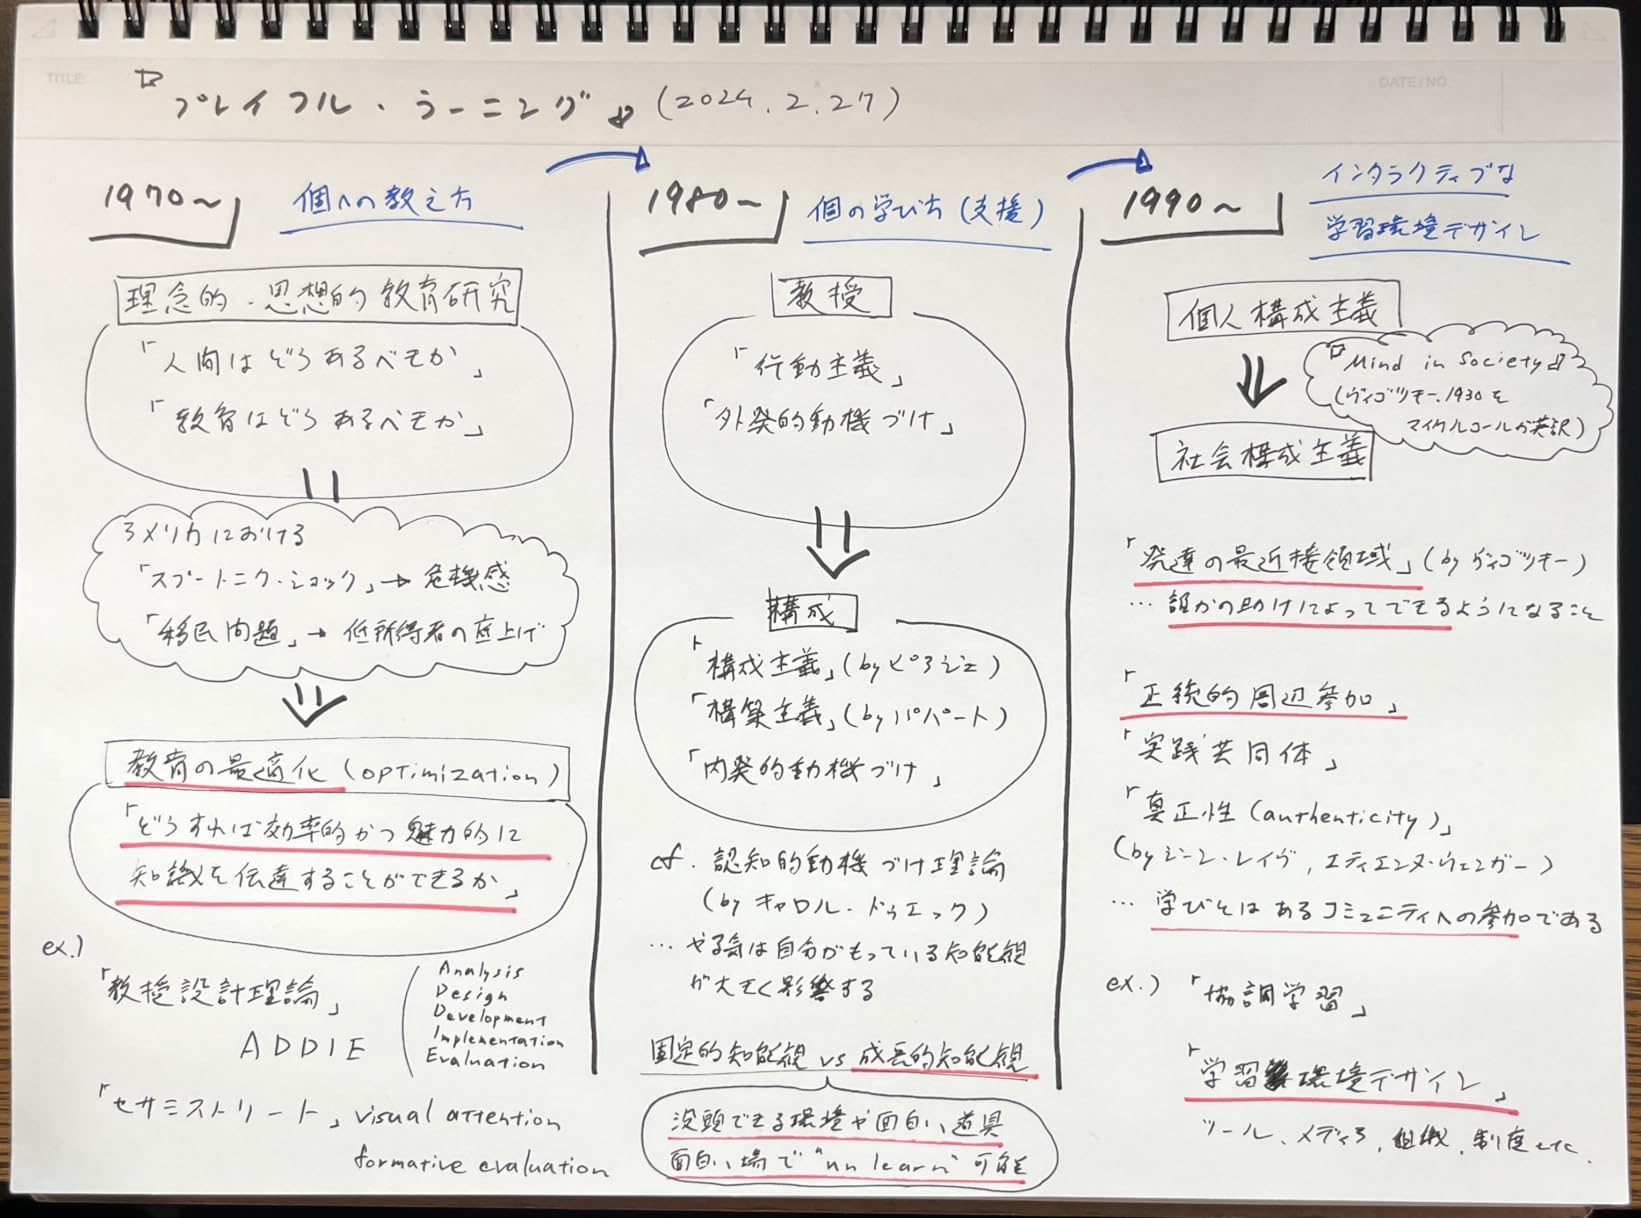 TITLE:
DATE/NO.
『プレイフル・ラーニング』(2024.2.27)
1970～
個への教え方
理念的・思想的教育研究
「人間はどうあるべきか」
「教育はどうあるべきか」
アメリカにおける
「スプートニク・ショック」→危機感
「移民問題」→低所得者の底上げ
教育の最適化(optimization)
「どうすれば効率的かつ魅力的に
知識を伝達することができるか」
ex.)
「教授設計理論」
ADDIE
Analysis
Design
Development
Implementation
Evaluation
「セサミストリート」visual attention
formative evaluation
1980～
個の学び方(支援)
教授
「行動主義」
「外発的動機づけ」
構成
「構成主義」(by ピアジェ)
「構築主義」(by パパート)
「内発的動機づけ」
cf. 認知的動機づけ理論
(by キャロル・ドゥエック)
…やる気は自分がもっている知能観
が大きく影響する
固定的知能観 vs 成長的知能観
没頭できる環境や面白い道具
面白い場で"un learn"可能
1990～
インタラクティブな
学習環境デザイン
個人構成主義
『Mind in Society』
(ヴィゴツキー.1930を
マイケルコールが英訳)
社会構成主義
「発達の最近接領域」(by ヴィゴツキー)
…誰かの助けによってできるようになること
「正統的周辺参加」
「実践共同体」
「真正性(authenticity)」
(by ジーン・レイヴ, エティエンヌ・ウェンガー)
…学びとはあるコミュニティへの参加である
ex.)「協調学習」
「学習環境デザイン」
ツール、メディア, 組織, 制度 etc.